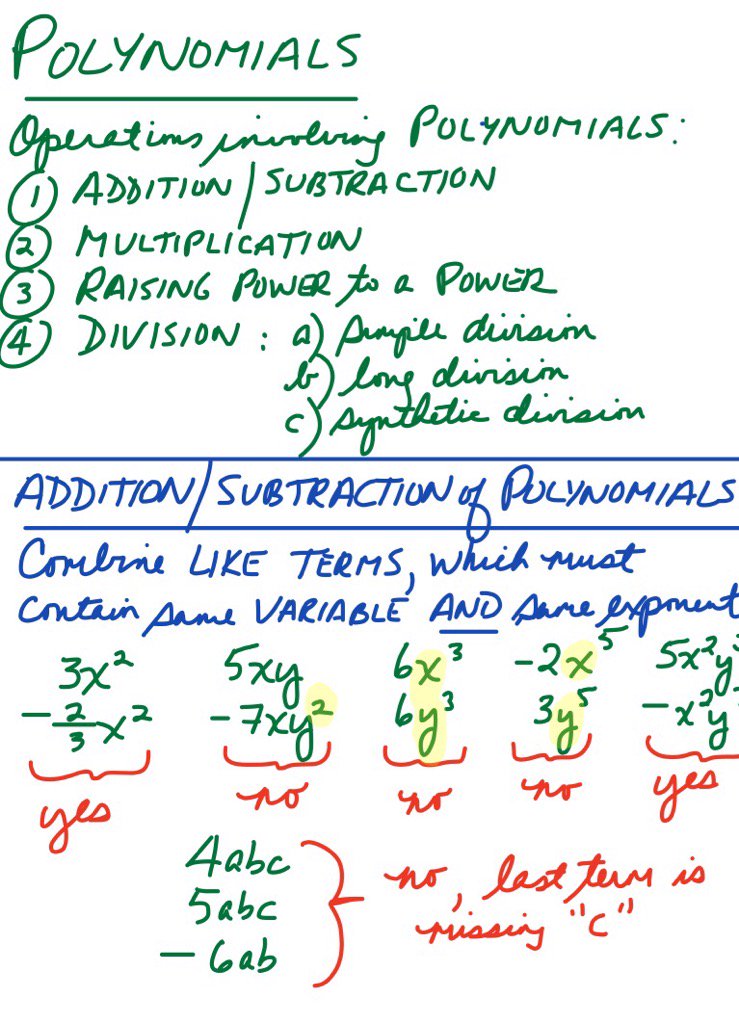 POLYNOMIALS
Operations involving POLYNOMIALS:
① ADDITION/SUBTRACTION
② MULTIPLICATION
③ RAISING POWER to a POWER
④ DIVISION: a) simple division
b) long division
c) synthetic division
ADDITION/SUBTRACTION of POLYNOMIALS
Combine LIKE TERMS, which must
contain same VARIABLE AND same exponent
3x² 5xy 6x³ -2x⁵ 5x²y
-2/3x² -7xy² 6y³ 3y⁵ -x²y
yes no no no yes
4abc
5abc
-6ab
no, last term is
missing "c"